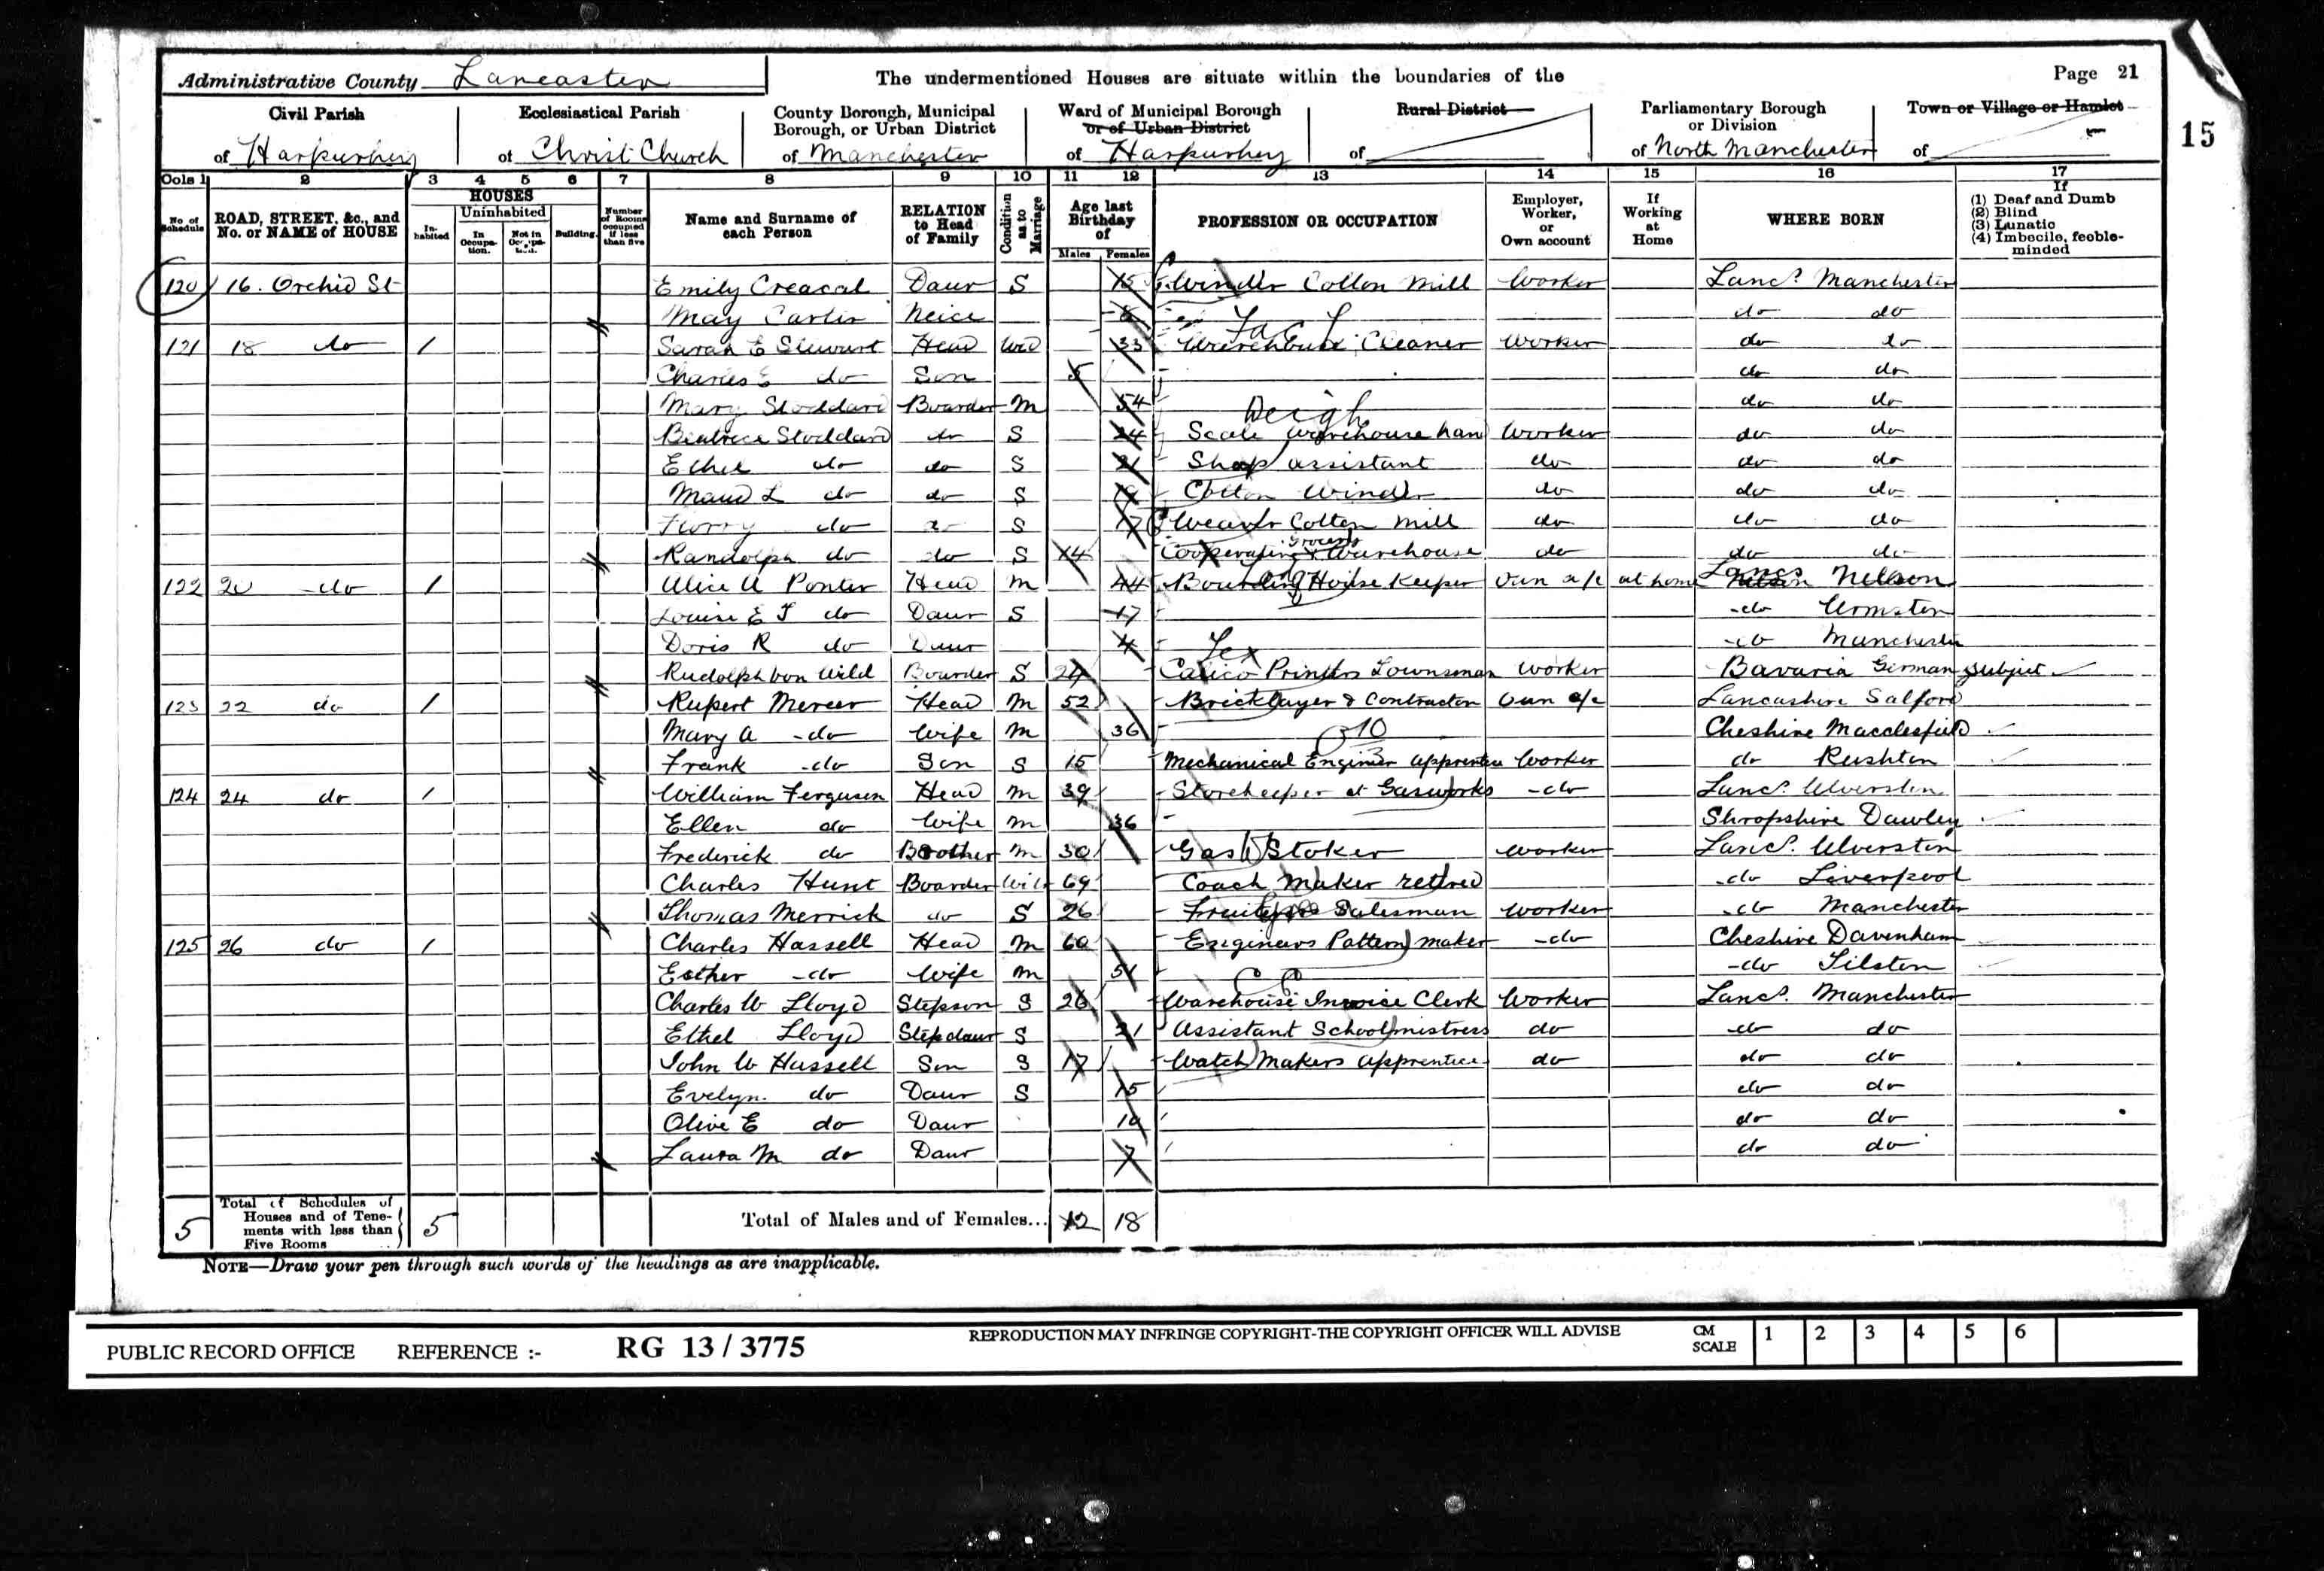 Administrative County Lancaster
The undermentioned Houses are situate within the boundaries of the
Page 21
15
Civil Parish of Harpurhey
Ecclesiastical Parish of Christ Church
County Borough, Municipal Borough, or Urban District of Manchester
Ward of Municipal Borough or of Urban District of Harpurhey
Rural District of
Parliamentary Borough or Division of North Manchester
Town or Village or Hamlet of
Cols 1 2 3 4 5 6 7 8 9 10 11 12 13 14 15 16 17
No. of Schedule
ROAD, STREET, &c., and No. or NAME of HOUSE
HOUSES
Inhabited
Uninhabited
In Occupation.
Not in Occupation.
Building.
Number of Rooms occupied if less than five
Name and Surname of each Person
RELATION to Head of Family
Condition as to Marriage
Age last Birthday of
Males Females
PROFESSION OR OCCUPATION
Employer, Worker, or Own account
If Working at Home
WHERE BORN
If
(1) Deaf and Dumb
(2) Blind
(3) Lunatic
(4) Imbecile, feeble-minded
120 16. Orchid St Emily Creacal Daur S 15 Winder Cotton Mill Worker Lancs. Manchester
May Carter Neice do do
121 18 do 1 Sarah E Stewart Head Wid 33 Warehouse Cleaner Worker do do
Charles E do Son 5 do do
Mary Stoddard Boarder M 54 do do
Weigh
Beatrice Stoddard do S 24 Scale Warehouse hand Worker do do
Ethel do do S 21 Shop assistant do do do
Maud L do do S 19 Cotton Winder do do do
Florry do do S 17 Weaver Cotton Mill do do do
Randolph do do S 14 Cooperative Grocers Warehouse do do do
122 20 do 1 Alice A Ponter Head M 44 Boarding House Keeper Own a/c at home Lancs Nelson
Louise E J do Daur S 17 do Urmston
Doris R do Daur 4 do Manchester
Tex
Rudolph von Wild Boarder S 24 Calico Printers Townsman Worker Bavaria German Subject
123 22 do 1 Rupert Mercer Head M 52 Bricklayer & Contractor Own a/c Lancashire Salford
Mary A do Wife M 36 Cheshire Macclesfield
310
Frank do Son S 15 Mechanical Engineer apprentice Worker do Rushton
124 24 do 1 William Ferguson Head M 39 Storekeeper at Gasworks do Lancs. Ulverston
Ellen do Wife M 36 Shropshire Dawley
Frederick do Brother M 30 Gas Stoker Worker Lancs. Ulverston
Charles Hunt Boarder Wid 69 Coach Maker retired do Liverpool
Thomas Merrick do S 26 Salesman Worker do Manchester
125 26 do 1 Charles Hassell Head M 60 Engineers Pattern maker do Cheshire Davenham
Esther do Wife M 51 do Tilston
Charles W Lloyd Stepson S 26 Warehouse Invoice Clerk Worker Lancs. Manchester
Ethel Lloyd Stepdaur S 21 Assistant Schoolmistress do do do
John W Hassell Son S 17 Watch Makers apprentice do do do
Evelyn. do Daur S 15 do do
Olive E do Daur 10 do do
Laura M do Daur 7 do do
5 Total of Schedules of Houses and of Tenements with less than Five Rooms 5
Total of Males and of Females... 12 18
NOTE—Draw your pen through such words of the headings as are inapplicable.
PUBLIC RECORD OFFICE REFERENCE :- RG 13 / 3775
REPRODUCTION MAY INFRINGE COPYRIGHT-THE COPYRIGHT OFFICER WILL ADVISE
CM SCALE 1 2 3 4 5 6